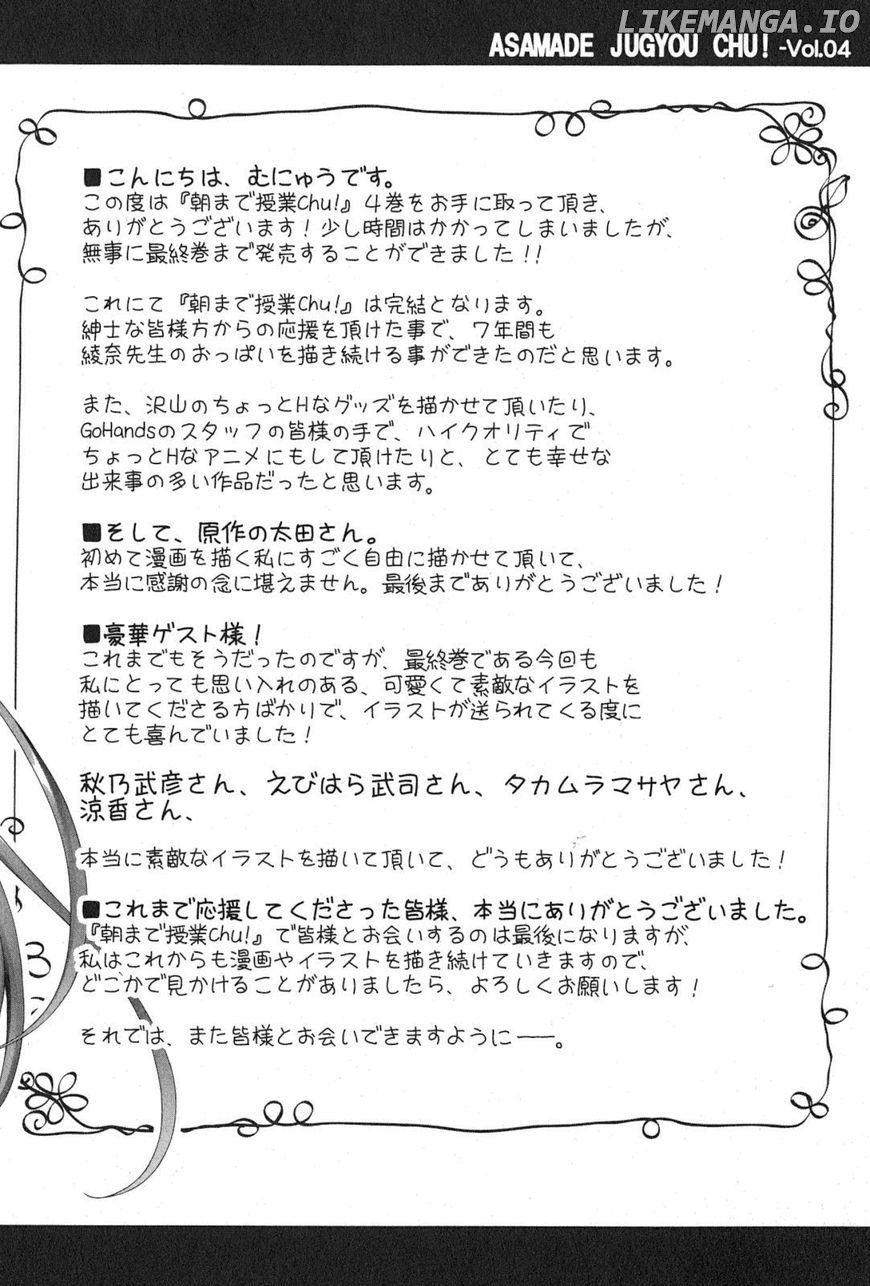 LIKEMANGA.IO
ASAMADE JUGYOU CHU! -Vol.04
■こんにちは、むにゅうです。
この度は『朝まで授業Chu!』４巻をお手に取って頂き、
ありがとうございます！少し時間はかかってしまいましたが、
無事に最終巻まで発売することができました！！
これにて『朝まで授業Chu!』は完結となります。
紳士な皆様方からの応援を頂けた事で、７年間も
綾奈先生のおっぱいを描き続ける事ができたのだと思います。
また、沢山のちょっとHなグッズを描かせて頂いたり、
GoHandsのスタッフの皆様の手で、ハイクオリティで
ちょっとHなアニメにもして頂けたりと、とても幸せな
出来事の多い作品だったと思います。
■そして、原作の太田さん。
初めて漫画を描く私にすごく自由に描かせて頂いて、
本当に感謝の念に堪えません。最後までありがとうございました！
■豪華ゲスト様！
これまでもそうだったのですが、最終巻である今回も
私にとっても思い入れのある、可愛くて素敵なイラストを
描いてくださる方ばかりで、イラストが送られてくる度に
とても喜んでいました！
秋乃武彦さん、えびはら武司さん、タカムラマサヤさん、
涼香さん、
本当に素敵なイラストを描いて頂いて、どうもありがとうございました！
■これまで応援してくださった皆様、本当にありがとうございました。
『朝まで授業Chu!』で皆様とお会いするのは最後になりますが、
私はこれからも漫画やイラストを描き続けていきますので、
どこかで見かけることがありましたら、よろしくお願いします！
それでは、また皆様とお会いできますように――。